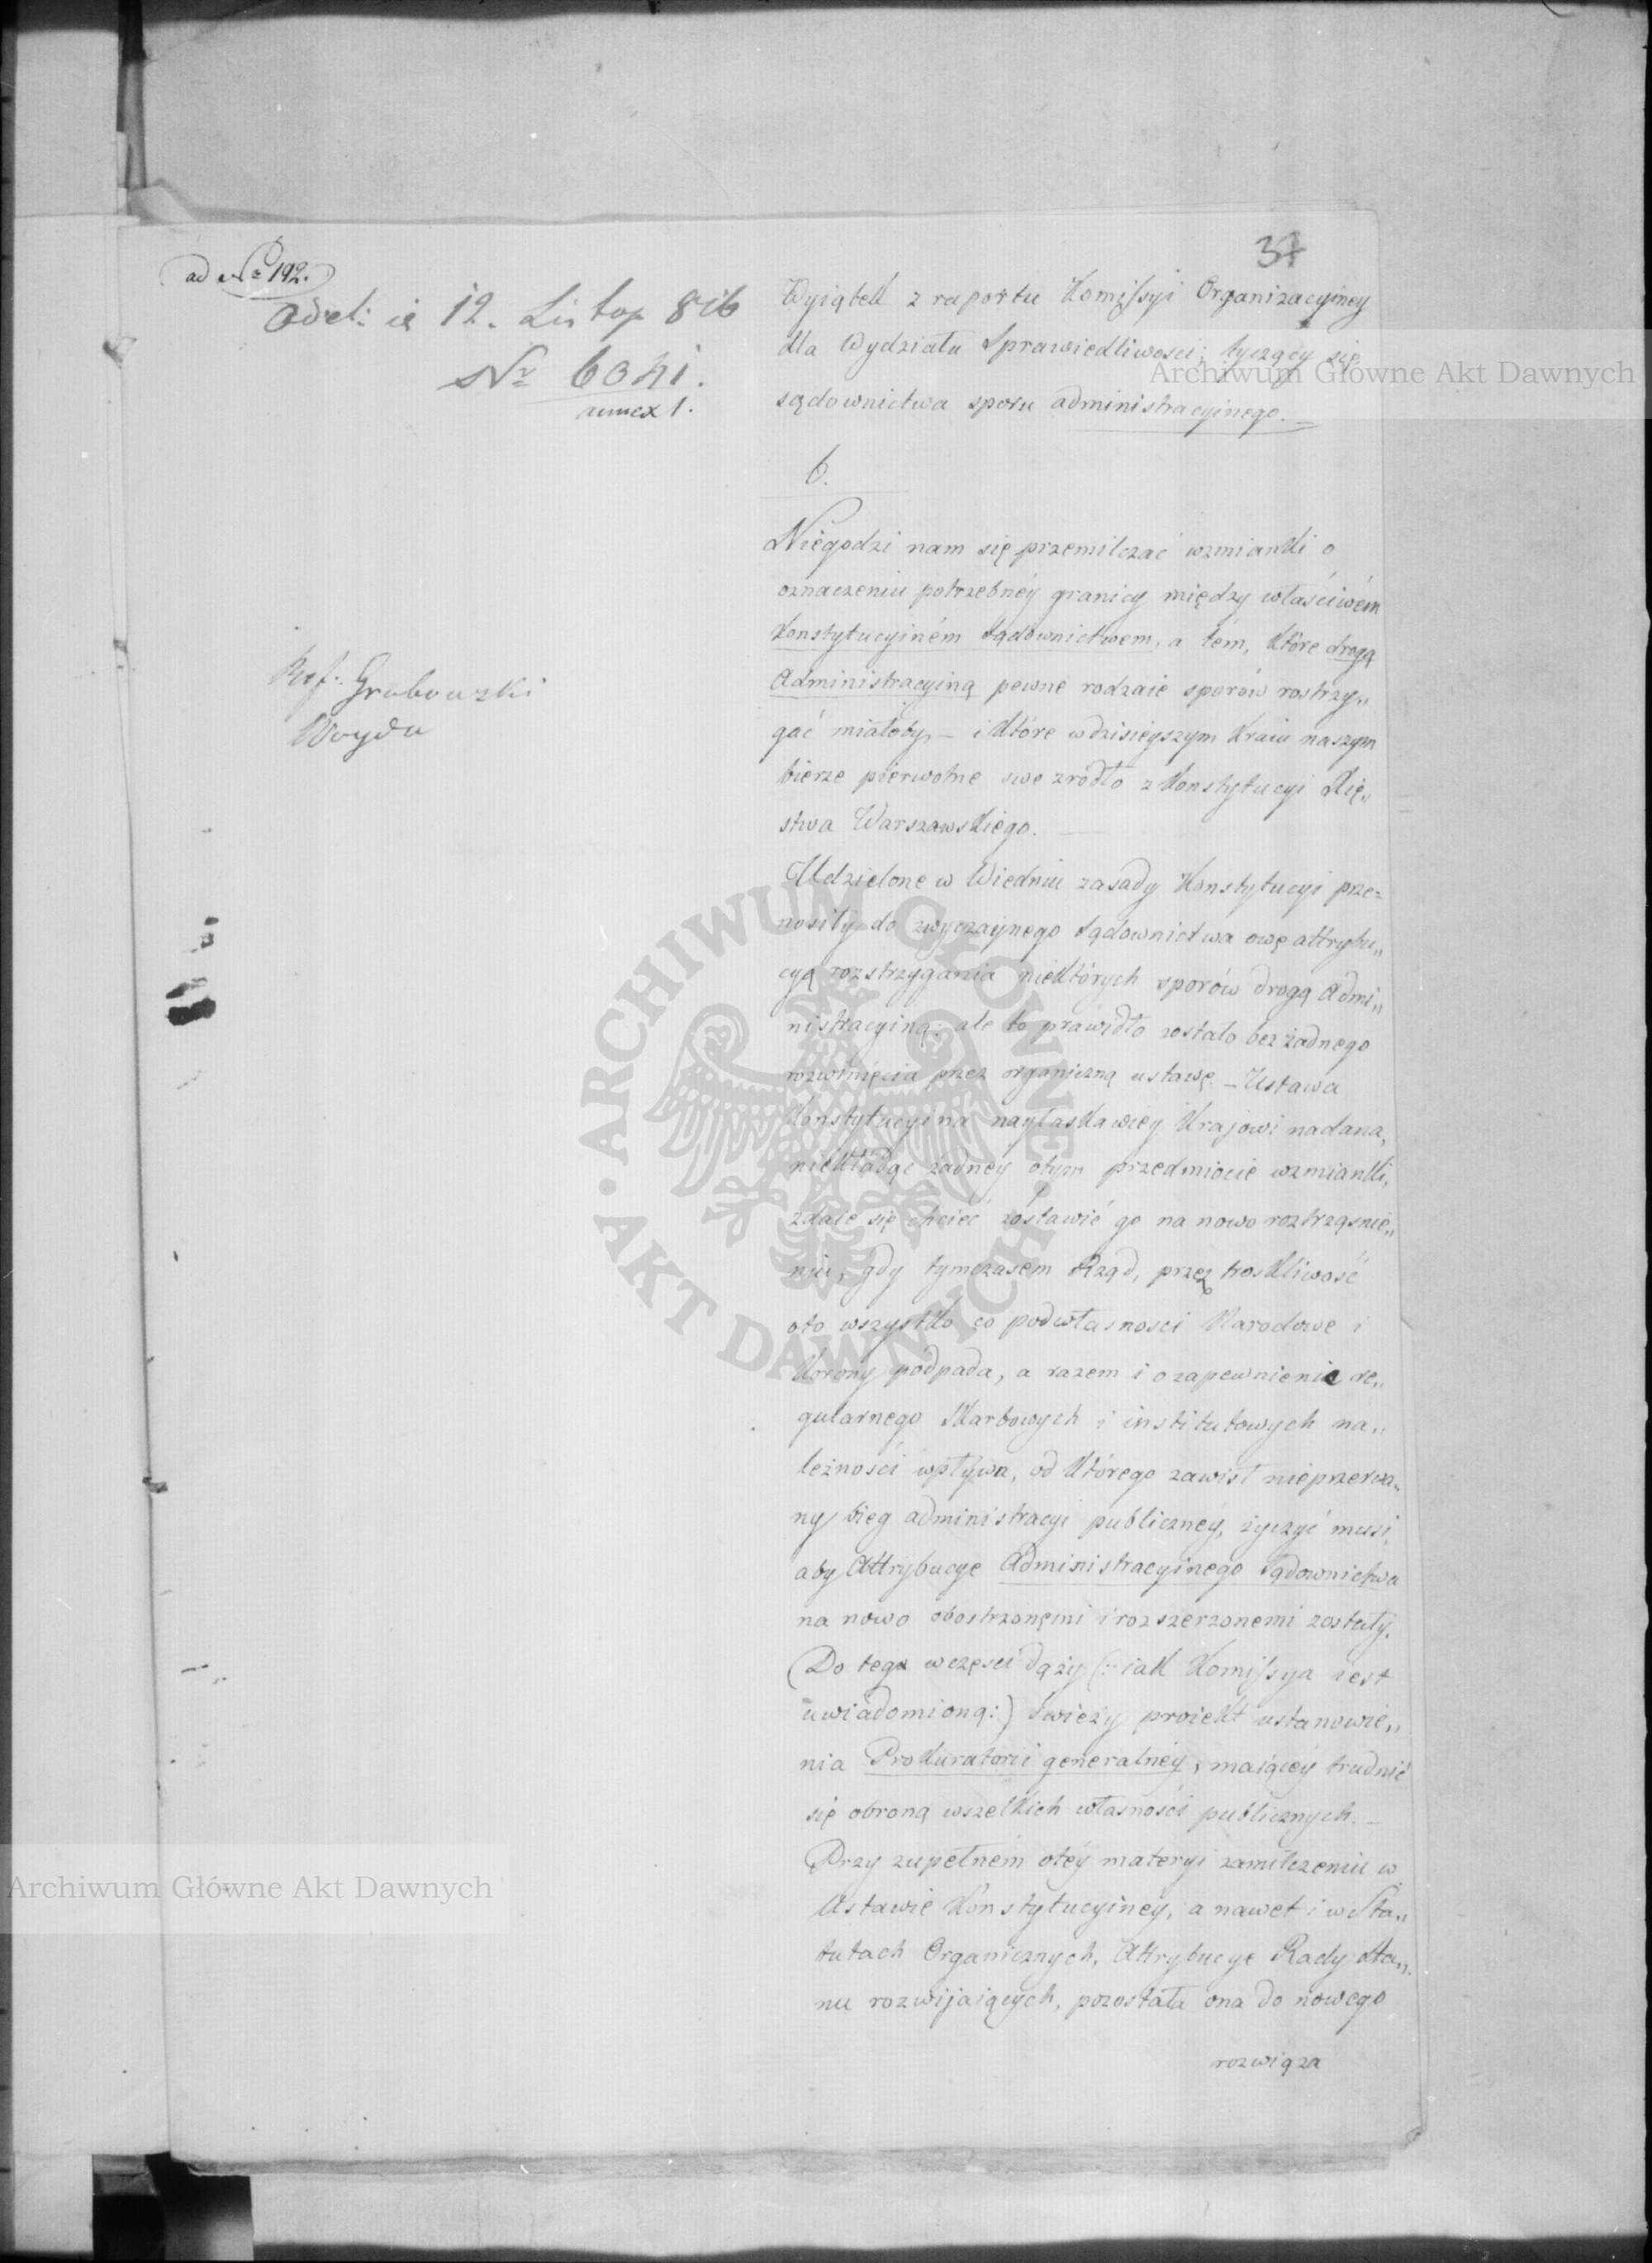 37
ad Nº 192.
Odebr: ie 12. Listop 816
Nº 6041.
annex 1.
Ref: Grabowski
Woyda
Wyiątek z raportu Komissyi Organizacyiney
dla Wydziału Sprawiedliwości; tyczący się
sądownictwa sporu administracyinego.
6.
Niegodzi nam się przemilczać wzmianki o
oznaczeniu potrzebnéy granicy między właściwém
konstytucyiném sądownictwem, a tém, które drogą
Administracyiną pewne rodzaie sporów rostrzy„
gać miałoby, – i które w dzisieyszym kraiu naszym
bierze pierwotne swe zródło z Konstytucyi Xię„
stwa Warszawskiego.
Udzielone w Wiedniu zasady Konstytucyi prze=
nosiły do zwyczaynego sądownictwa owę attrybu„
cyą rozstrzygania niektórych sporów drogą Admi„
nistracyiną: ale to prawidło zostało bez żadnego
rozwinięcia przez organiczną ustawę. – Ustawa
Konstytucyina nayłaskawiey Krajowi nadana,
niekładąc żadney otym przedmiocie wzmianki,
zdaie się chcieć zostawić go na nowo roztrząsnie„
niu, gdy tymczasem Rząd, przez troskliwość
oto wszystko co podwłasności Narodowe i
Korony podpada, a razem i o zapewnienie re„
gularnego Skarbowych i institutowych na„
leżności wpływu, od którego zawisł nieprzerwa„
ny bieg administracyi publicznéy, życzyć musi,
aby Attrybucye Administracyinego sądownictwa
na nowo obostrzonemi i rozszerzonemi zostały.
(Do tego wczęści dąży (: iak Komissya iest
uwiadomioną:) świeży proiekt ustanowie„
nia Prokuratorii generalnéy, maiącéy trudnić
się obroną wszelkich własności publicznych. –
Przy zupełném otéy materyi zamilczeniu w
Ustawie Konstytucyinéy, a nawet i w Sta„
tutach Organicznych, Attrybucye Rady Sta„
nu rozwijaiących, pozostała ona do nowego
rozwiąza
Archiwum Główne Akt Dawnych
ARCHIWUM GŁÓWNE • AKT DAWNYCH •
Archiwum Główne Akt Dawnych